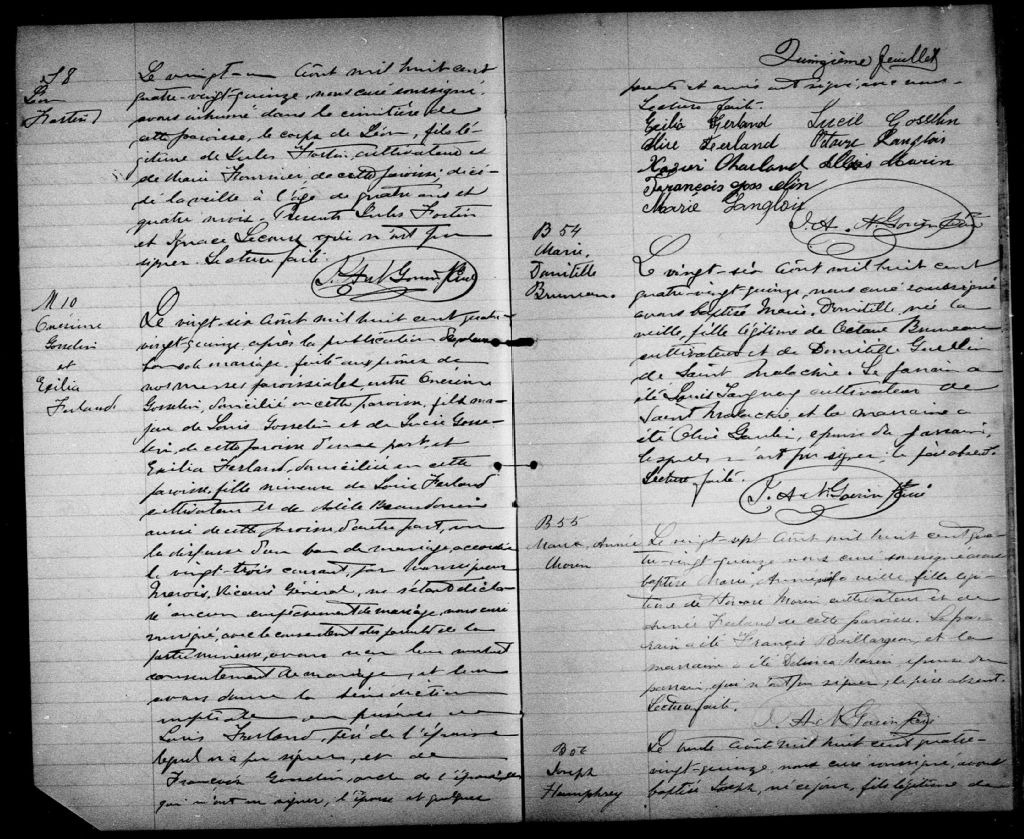 S 8
Léon
Fortin
Le vingt-un Août mil huit cent
quatre-vingt-quinze, nous curé soussigné,
avons inhumé dans le cimetière de
cette paroisse, le corps de Léon, fils lé-
gitime de Jules Fortin, cultivateur et
de Marie Fournier, de cette paroisse, décé-
dé la veille à l'âge de quatre ans et
quatre mois. Présents Jules Fortin
et Ignace Lecours qui n'ont pu
signer. Lecture faite.
J. A. N. Gouin Ptre
M 10
Gosselin
et
Exilia
Ferland
Le vingt-six Août mil huit cent quatre-
vingt-quinze, après la publication de deux
bans de mariage, faite aux prônes de
nos messes paroissiales, entre
Gosselin, domicilié en cette paroisse, fils ma-
jeur de Louis Gosselin et de Lucie Gosse-
lin, de cette paroisse d'une part, et
Exilia Ferland, domiciliée en cette
paroisse, fille mineure de Louis Ferland
cultivateur et de Beaudoin
aussi de cette paroisse, d'autre part, vu
la dispense d'un ban de mariage, accordée
le vingt-trois courant, par
Marois, Vicaire Général, ne s'étant décla-
ré aucun empêchement de mariage, nous curé
soussigné, avec le consentement des parents de la
partie mineure, avons reçu leur mutuel
consentement de mariage, et leur
avons donné la bénédiction
nuptiale en présence de
Louis Ferland, père de l'épouse
lequel n'a pu signer, et de
François Gosselin, oncle de
qui n'ont su signer, l'épouse et quelques
Quinzième feuillet
parents et amis ont signé avec nous.
Lecture faite.
Exilia Ferland Lucie Gosselin
Ferland Octave Langlois
Xavier Charland Marin
François gosselin
Marie Langlois
J. A. N. Gouin Ptre
B 54
Marie,
Domitille
Bruneau
Le vingt-six Août mil huit cent
quatre-vingt-quinze, nous curé soussigné
avons baptisé Marie, Domitille, née la
veille, fille légitime de Octave Bruneau
cultivateur et de Domitille
de Saint Malachie. Le parrain a
été Louis cultivateur de
Saint Malachie et la marraine a
été, épouse du parrain,
lesquels n'ont pu signer; le père absent.
Lecture faite.
J. A. N. Gouin Ptre
B 55
Marie, Annie
Morin
Le vingt-sept Août mil huit cent qua-
tre-vingt-quinze nous curé soussigné avons
baptisé Marie, Annie, née la veille, fille légi-
time de Morin cultivateur et de
Ferland de cette paroisse. Le par-
rain a été Francis Baillargeon, et la
marraine a été Morin, épouse du
parrain, qui n'ont pu signer, le père absent.
Lecture faite.
J. A. N. Gouin Ptre
B 56
Joseph
Humphrey
Le trente Août mil huit cent quatre-
vingt-quinze, nous curé soussigné, avons
baptisé Joseph, né ce jour, fils légitime de